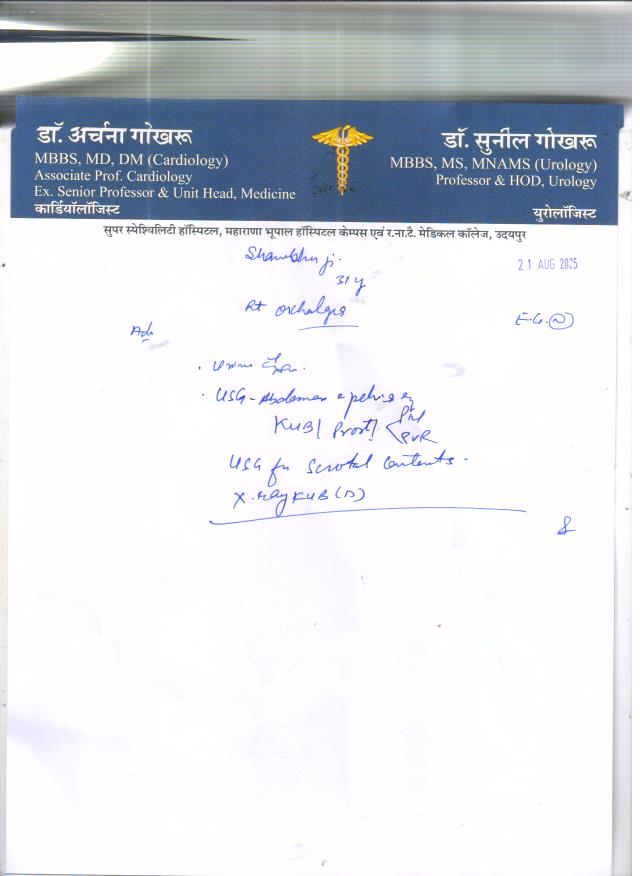 डॉ. अर्चना गोखरू
MBBS, MD, DM (Cardiology)
Associate Prof. Cardiology
Ex. Senior Professor & Unit Head, Medicine
कार्डियॉलॉजिस्ट
डॉ. सुनील गोखरू
MBBS, MS, MNAMS (Urology)
Professor & HOD, Urology
युरोलॉजिस्ट
सुपर स्पेश्यिलिटी हॉस्पिटल, महाराणा भूपाल हॉस्पिटल केम्पस एवं र.ना.टै. मेडिकल कॉलेज, उदयपुर
21 AUG 2025
31 y
Rt
Adv
USG - Abdomen & pelvis
KUB / Prost
PVR
USG for Scrotal Contents.
X-ray KUB (D)